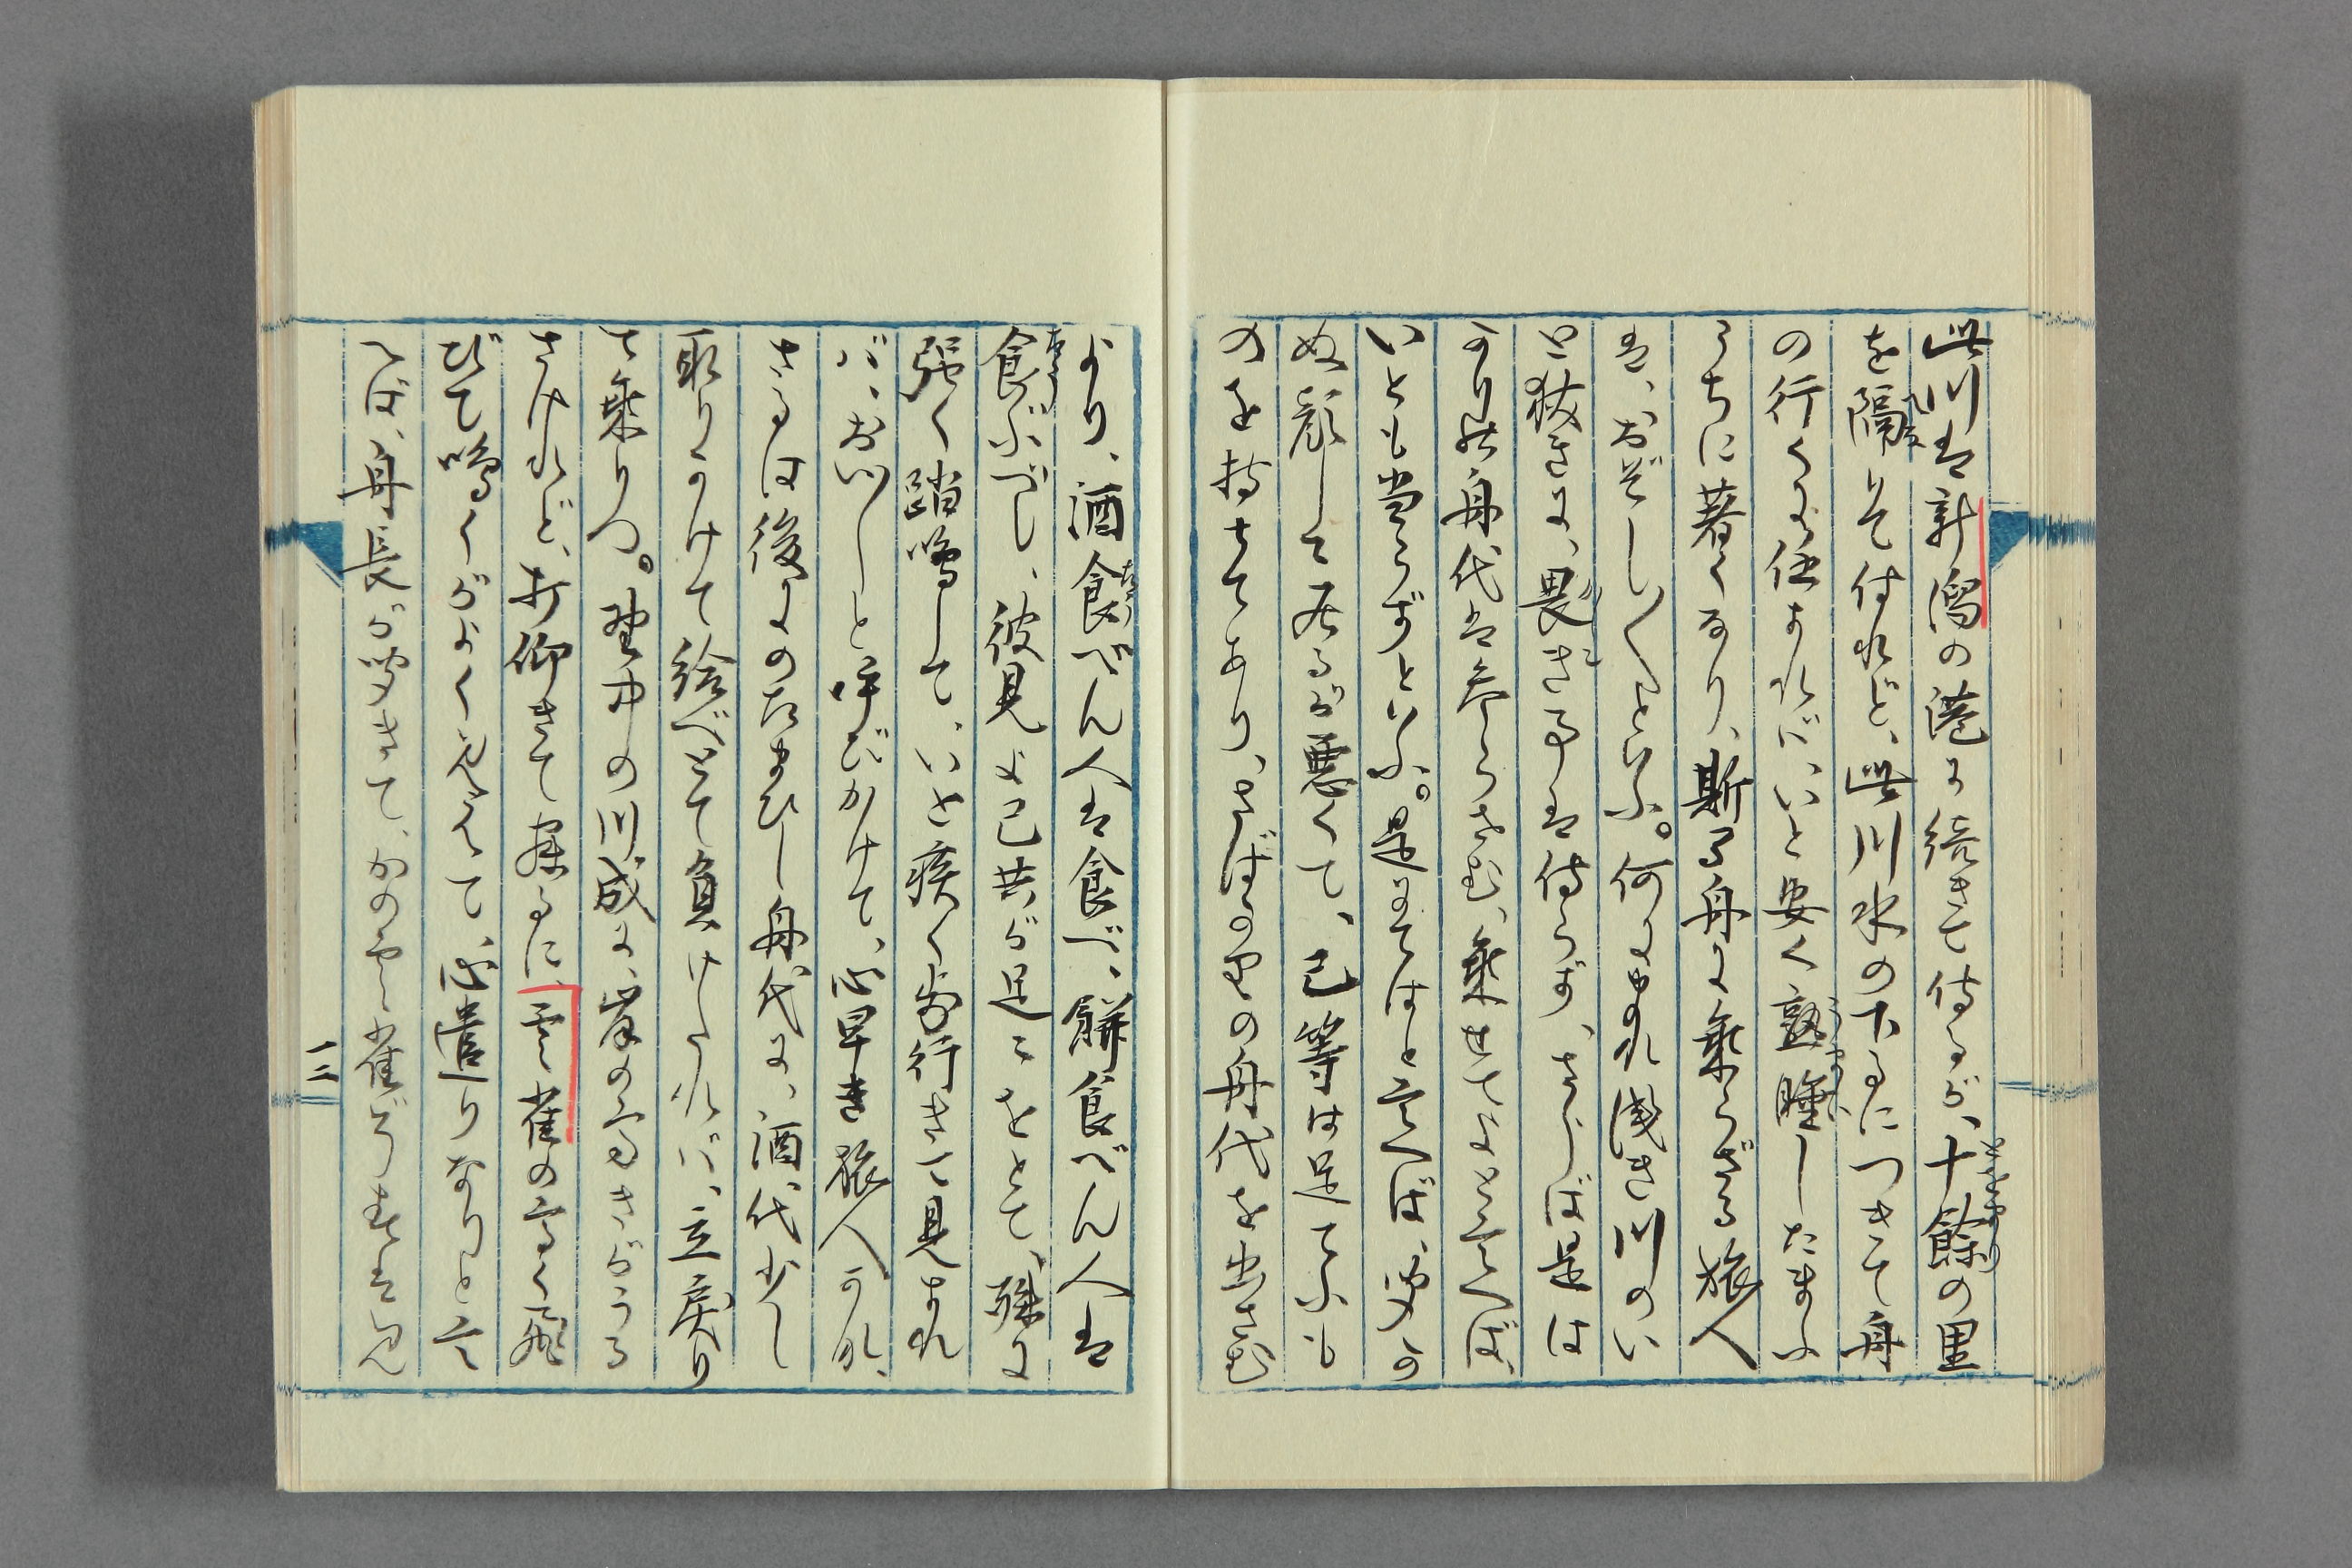 此川は新潟の港に続きて侍るが、十餘の里
を隔りて侍れど、此川水の下るにつきて舟
の行くに任すれバ、いと安く熟睡したまふ
うちに着くなり、斯る舟に乗らざる旅人
は、おぞし〳〵といふ。何にまれ浅き川のい
と狭きに、畏き事は侍らず、さらば是は
より舟代は参らさむ、乗せてよと言へば、
いとも当らずといふ。是にてはと言へば、
ぬ顔して居るが悪くて、己等は足てふも
のを持ちてあり、さばかりの舟代を出さむ
より、酒食べん人は食べ、餅食べん人は
食ぶべし、彼見よ己共が足をとて、殊に
強く踏鳴して、いと疾く歩行きて見すれ
バ、おい〳〵しと呼びかけて、心早き旅人かな、
さらば後にのたまひし舟代に、酒代少し
取りかけて給べとて負けたれバ、立戻り
て乗りつ。野中の川成に、岸の高きがうる
さけれど、打仰きて寐るに、雲雀の高く飛
びて鳴くがよく見えて、心善りなりと言
へば、舟長が聞きて、かの雲雀ぞ
二